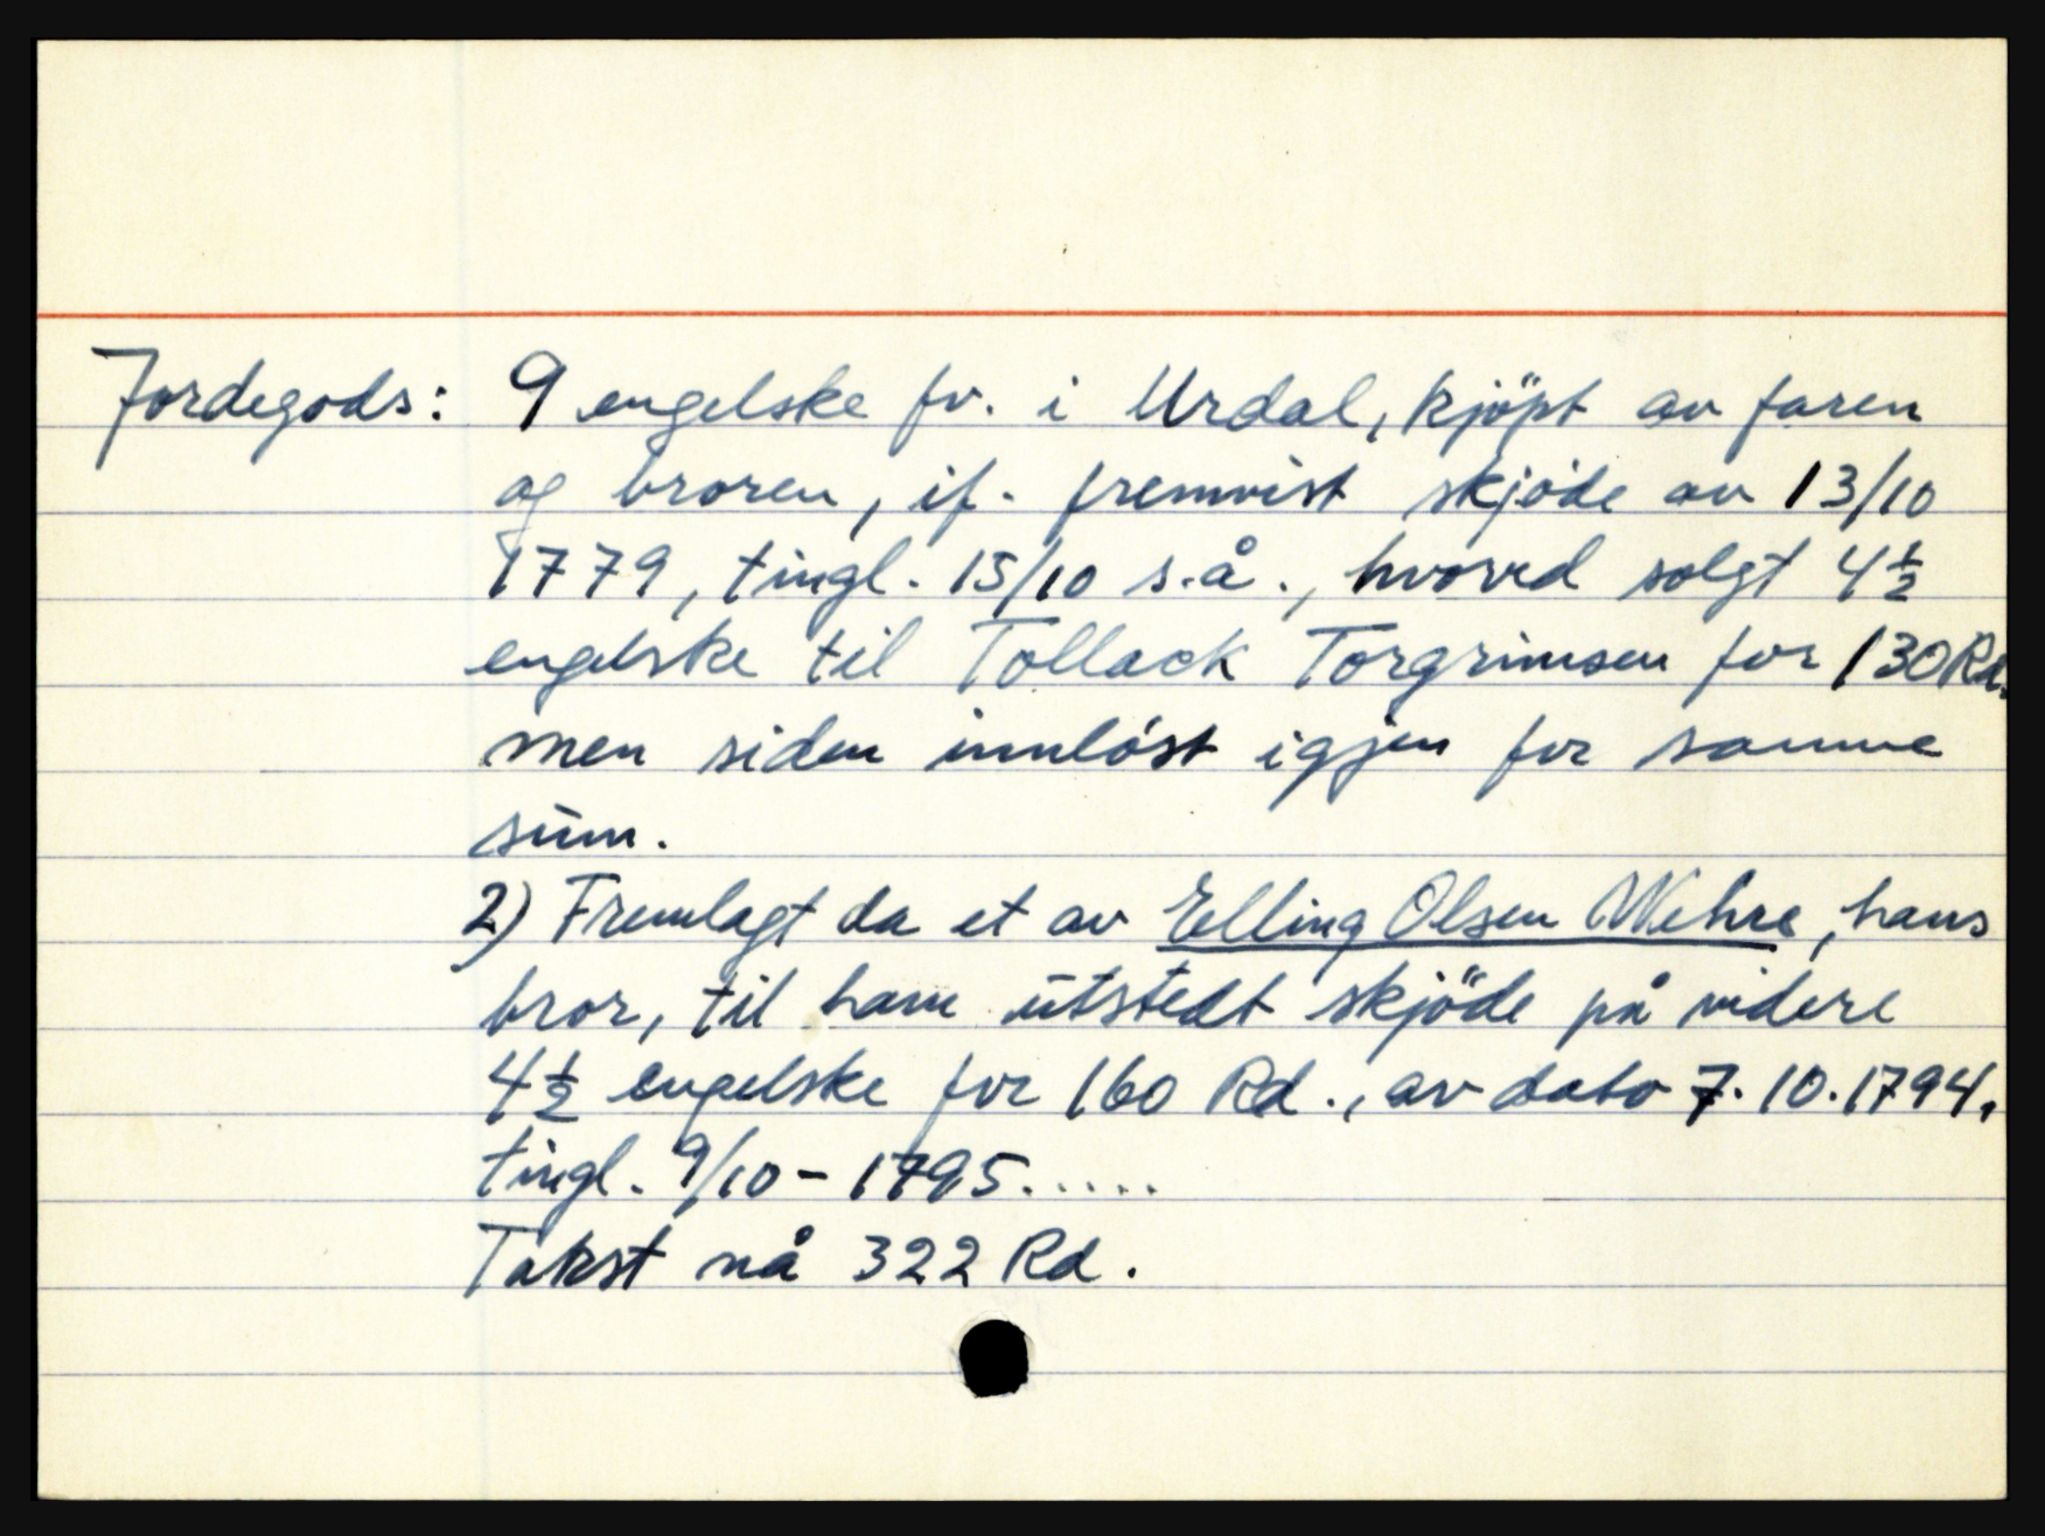 Jordegods: 9 engelske fv. i Urdal, kjöpt av faren
og broren, if. fremvist skjöde av 13/10
1779, tingl. 15/10 s.å., hvorved solgt 4½
engelske til Tollack Torgrimsen for 130 Rd.
men siden innlöst igjen for samme
sum.
2) Fremlagt da et av Elling Olsen Wehre, hans
bror, til ham utstedt skjöde på videre
4½ engelske for 160 Rd., av dato 7.10.1794,
tingl. 9/10-1795......
Takst nå 322 Rd.